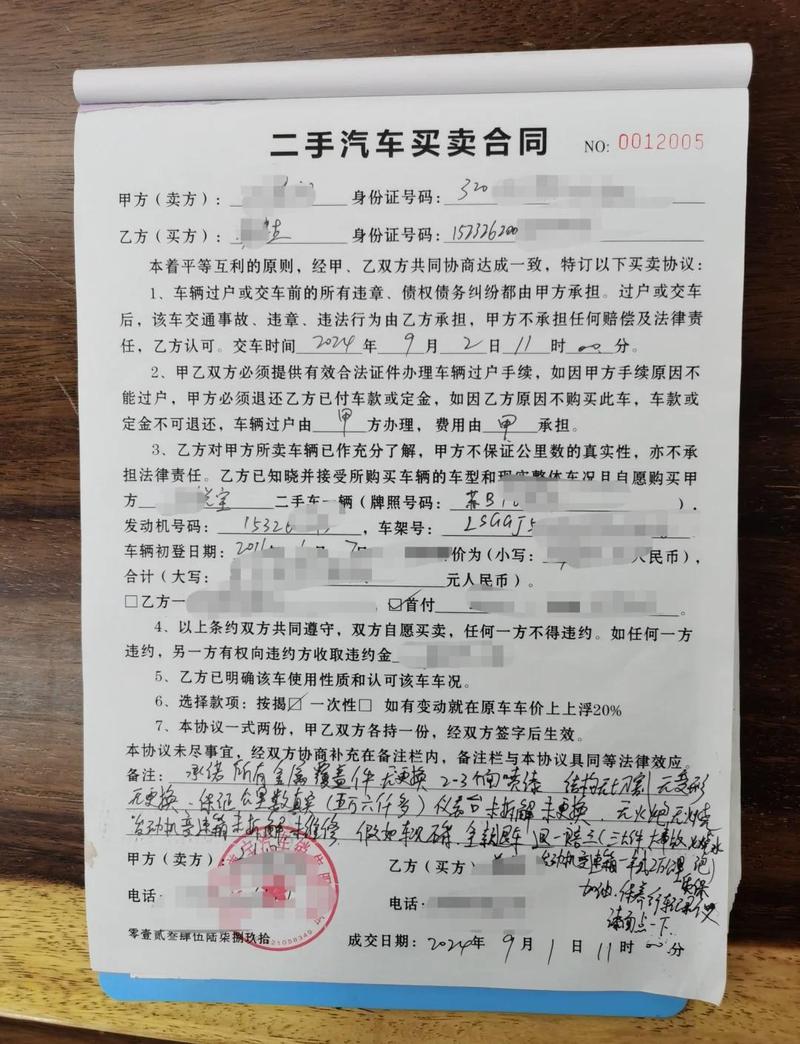 二手汽车买卖合同 NO: 0012005
甲方（卖方）： 身份证号码： 320
乙方（买方）： 身份证号码： 152326200
本着平等互利的原则，经甲、乙双方共同协商达成一致，特订以下买卖协议：
1、车辆过户或交车前的所有违章、债权债务纠纷都由甲方承担。过户或交车
后，该车交通事故、违章、违法行为由乙方承担，甲方不承担任何赔偿及法律责
任，乙方认可。交车时间 2024 年 9 月 2 日 11 时 00 分。
2、甲乙双方必须提供有效合法证件办理车辆过户手续，如因甲方手续原因不
能过户，甲方必须退还乙方已付车款或定金，如因乙方原因不购买此车，车款或
定金不可退还，车辆过户由 甲 方办理，费用由 甲 承担。
3、乙方对甲方所卖车辆已作充分了解，甲方不保证公里数的真实性，亦不承
担法律责任。乙方已知晓并接受所购买车辆的车型和现实整体车况且自愿购买甲
方 宝 二手车一辆（牌照号码： 苏B ）.
发动机号码： 15326 ，车架号： LSGGJ5
车辆初登日期： 价为（小写： 人民币），
合计（大写： 元人民币）。
□乙方一 ☑首付 。
4、以上条约双方共同遵守，双方自愿买卖，任何一方不得违约。如任何一方
违约，另一方有权向违约方收取违约金
5、乙方已明确该车使用性质和认可该车车况。
6、选择款项：按揭☑ 一次性□ 如有变动就在原车车价上上浮20%
7、本协议一式两份，甲乙双方各持一份，经双方签字后生效。
本协议未尽事宜，经双方协商补充在备注栏内，备注栏与本协议具同等法律效应。
备注： 承诺所有金属覆盖件无更换 2-3个面喷漆 结构无切割 无变形
无更换 保证公里数真实（五万六仟多）仪表台未拆解未更换 无火烧
发动机变速箱未拆解未维修 假如车况不确 全款退车 退一赔三（三大件 大事故 火烧 水
甲方（卖方）： 乙方（买方） 发动机变速箱一年或2万公里 泡）
质保
电话： 电话： 加油.保养 行车记录仪
零壹贰叁肆伍陆柒捌玖拾 成交日期： 2024年 9 月 1 日 11 时 00 分